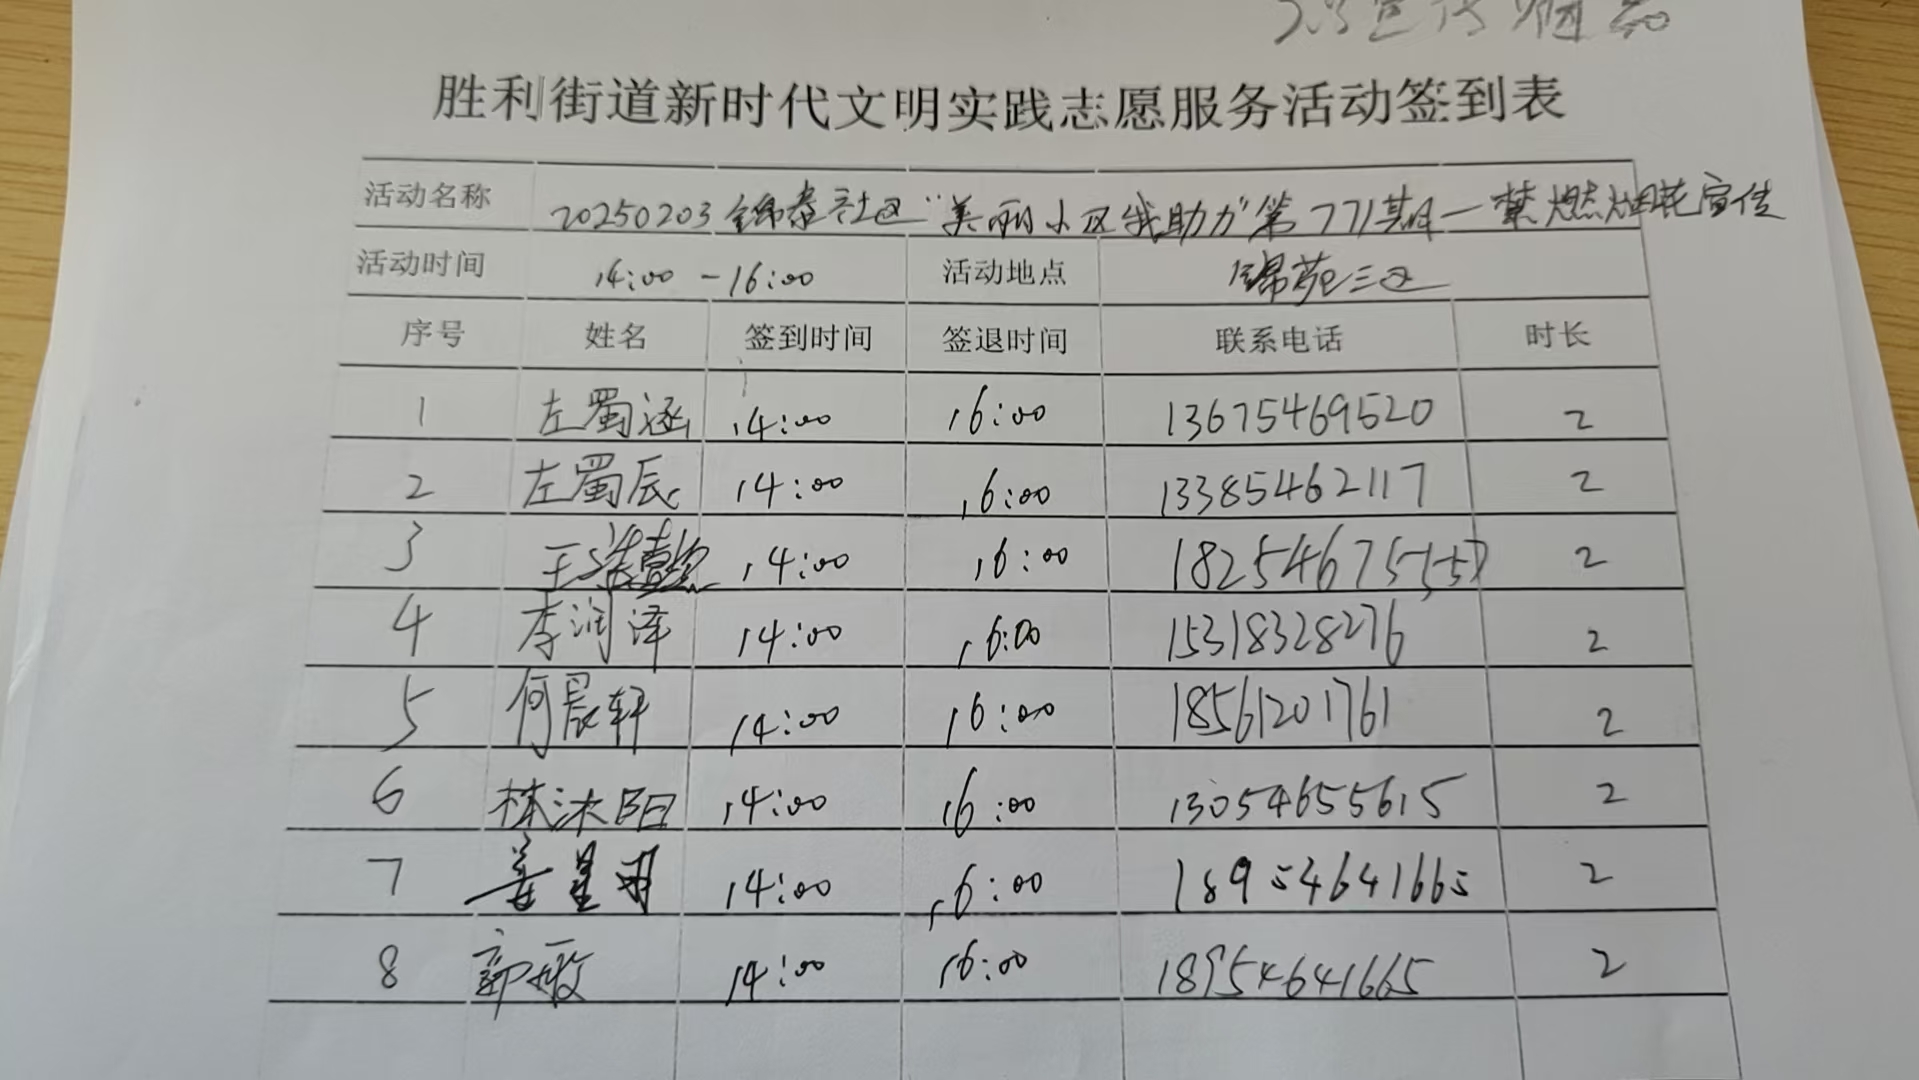 2.3宣传
胜利街道新时代文明实践志愿服务活动签到表
活动名称 20250203锦春社区“美丽小区我助力”第771期—禁燃烟花宣传
活动时间 14:00-16:00 活动地点 锦苑三区
序号 姓名 签到时间 签退时间 联系电话 时长
1 左蜀涵 14:00 16:00 13675469520 2
2 左蜀辰 14:00 16:00 13385462117 2
3 王 14:00 16:00 2
4 李润泽 14:00 16:00 15318328276 2
5 何晨轩 14:00 16:00 18561201761 2
6 林沐阳 14:00 16:00 13054655615 2
7 姜星羽 14:00 16:00 18954641665 2
8 郭 14:00 16:00 18954641665 2